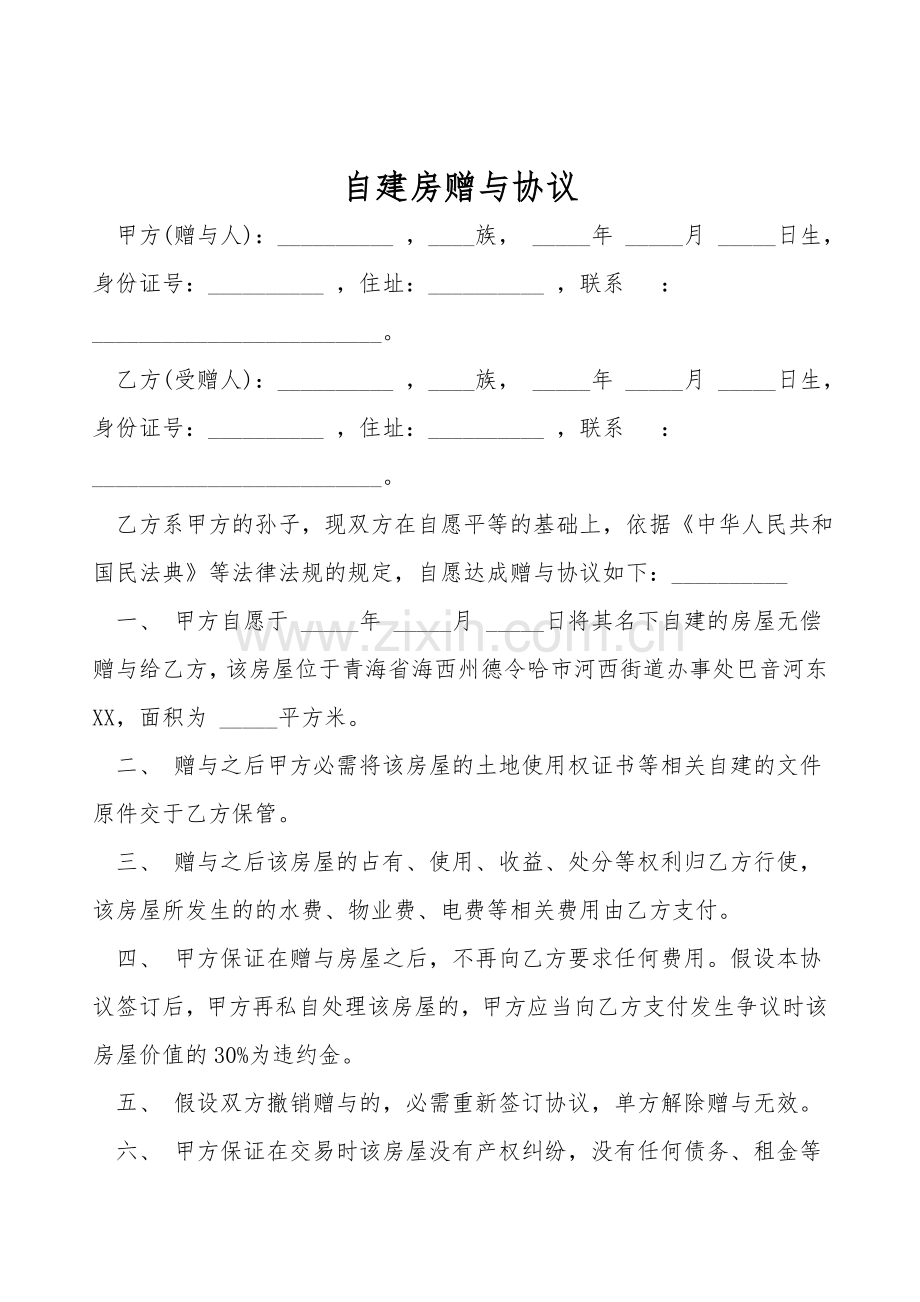 自建房赠与协议
甲方(赠与人): __________ ，____族， _____年 _____月 _____日生，
身份证号: __________ ，住址: __________ ，联系 :
_________________________。
乙方(受赠人): __________ ，____族， _____年 _____月 _____日生，
身份证号: __________ ，住址: __________ ，联系 :
_________________________。
乙方系甲方的孙子，现双方在自愿平等的基础上，依据《中华人民共和
国民法典》等法律法规的规定，自愿达成赠与协议如下: __________
一、 甲方自愿于 _____年 _____月 _____日将其名下自建的房屋无偿
赠与给乙方，该房屋位于青海省海西州德令哈市河西街道办事处巴音河东
XX，面积为 _____平方米。
二、 赠与之后甲方必需将该房屋的土地使用权证书等相关自建的文件
原件交于乙方保管。
三、 赠与之后该房屋的占有、使用、收益、处分等权利归乙方行使，
该房屋所发生的的水费、物业费、电费等相关费用由乙方支付。
四、 甲方保证在赠与房屋之后，不再向乙方要求任何费用。假设本协
议签订后，甲方再私自处理该房屋的，甲方应当向乙方支付发生争议时该
房屋价值的30%为违约金。
五、 假设双方撤销赠与的，必需重新签订协议，单方解除赠与无效。
六、 甲方保证在交易时该房屋没有产权纠纷，没有任何债务、租金等
www.zixin.com.cn